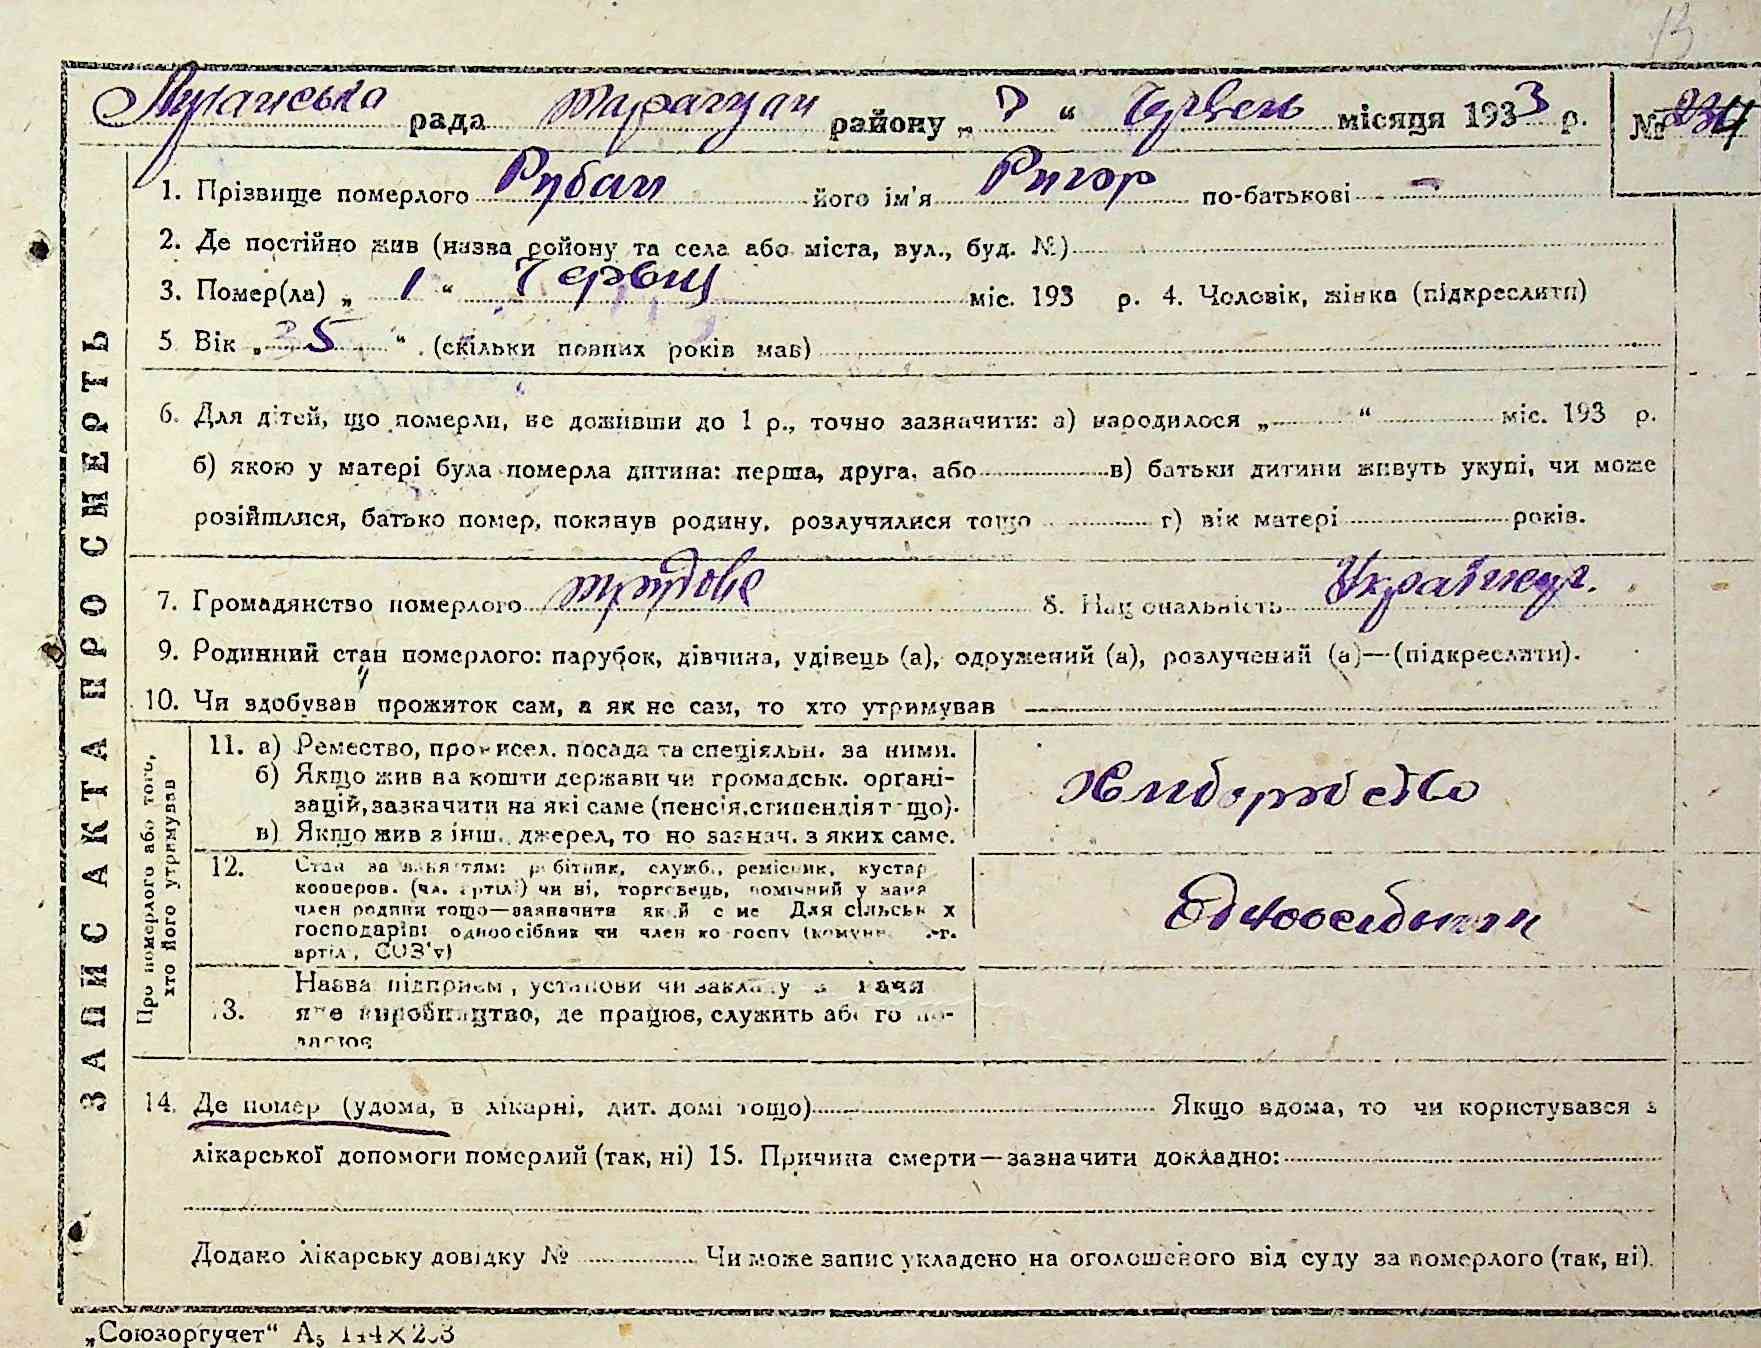 13
Луганська рада Таращан району „ 7 “ Червень місяця 1933 р. № 234
1. Прізвище померлого Рубан його ім'я Ригор по-батькові —
2. Де постійно жив (назва району та села або міста, вул., буд. №)
3. Помер(ла) „ 1 “ Червня міс. 193 р. 4. Чоловік, жінка (підкреслити)
5 Вік „ 35 “ . (скільки повних років мав)
6. Для дітей, що померли, не доживши до 1 р., точно зазначити: а) народилося „ “ міс. 193 р.
б) якою у матері була померла дитина: перша, друга, або в) батьки дитини живуть укупі, чи може
розійшлися, батько помер, покинув родину, розлучилися тощо г) вік матері років.
7. Громадянство померлого трудове 8. Національність Українец.
9. Родинний стан померлого: парубок, дівчина, удівець (а), одружений (а), розлучений (а)—(підкреслити).
10. Чи здобував прожиток сам, а як не сам, то хто утримував
ЗАПИС АКТА ПРО СМЕРТЬ
Про померлого або того,
хто його утримував
11. а) Ремество, промисел, посада та спеціяльн. за ними.
б) Якщо жив на кошти держави чи громадськ. організацій, зазначити на які саме (пенсія, стипендія тощо).
в) Якщо жив з інш. джерел, то но зазнач. з яких саме.
Хлиборобство
12. Стан за заняттям: робітник, служб., ремісник, кустар
кооперов. (чл. артілі) чи ні, торговець, помічний у заня
член родини тощо—зазначити який с ме Для сільськ х
господарів: одноосібник чи член ко госпу (комуни, .-г.
артіл , СОЗ'у)
Одноосібник
13. Назва підприєм , установи чи закладу
яке виробництво, де працює, служить або го по-
14. Де помер (удома, в лікарні, дит. домі тощо) Якщо вдома, то чи користувався з
лікарської допомоги померлий (так, ні) 15. Причина смерти—зазначити докладно:
Додано лікарську довідку № Чи може запис укладено на оголошеного від суду за померлого (так, ні).
„Союзоргучет“ А5